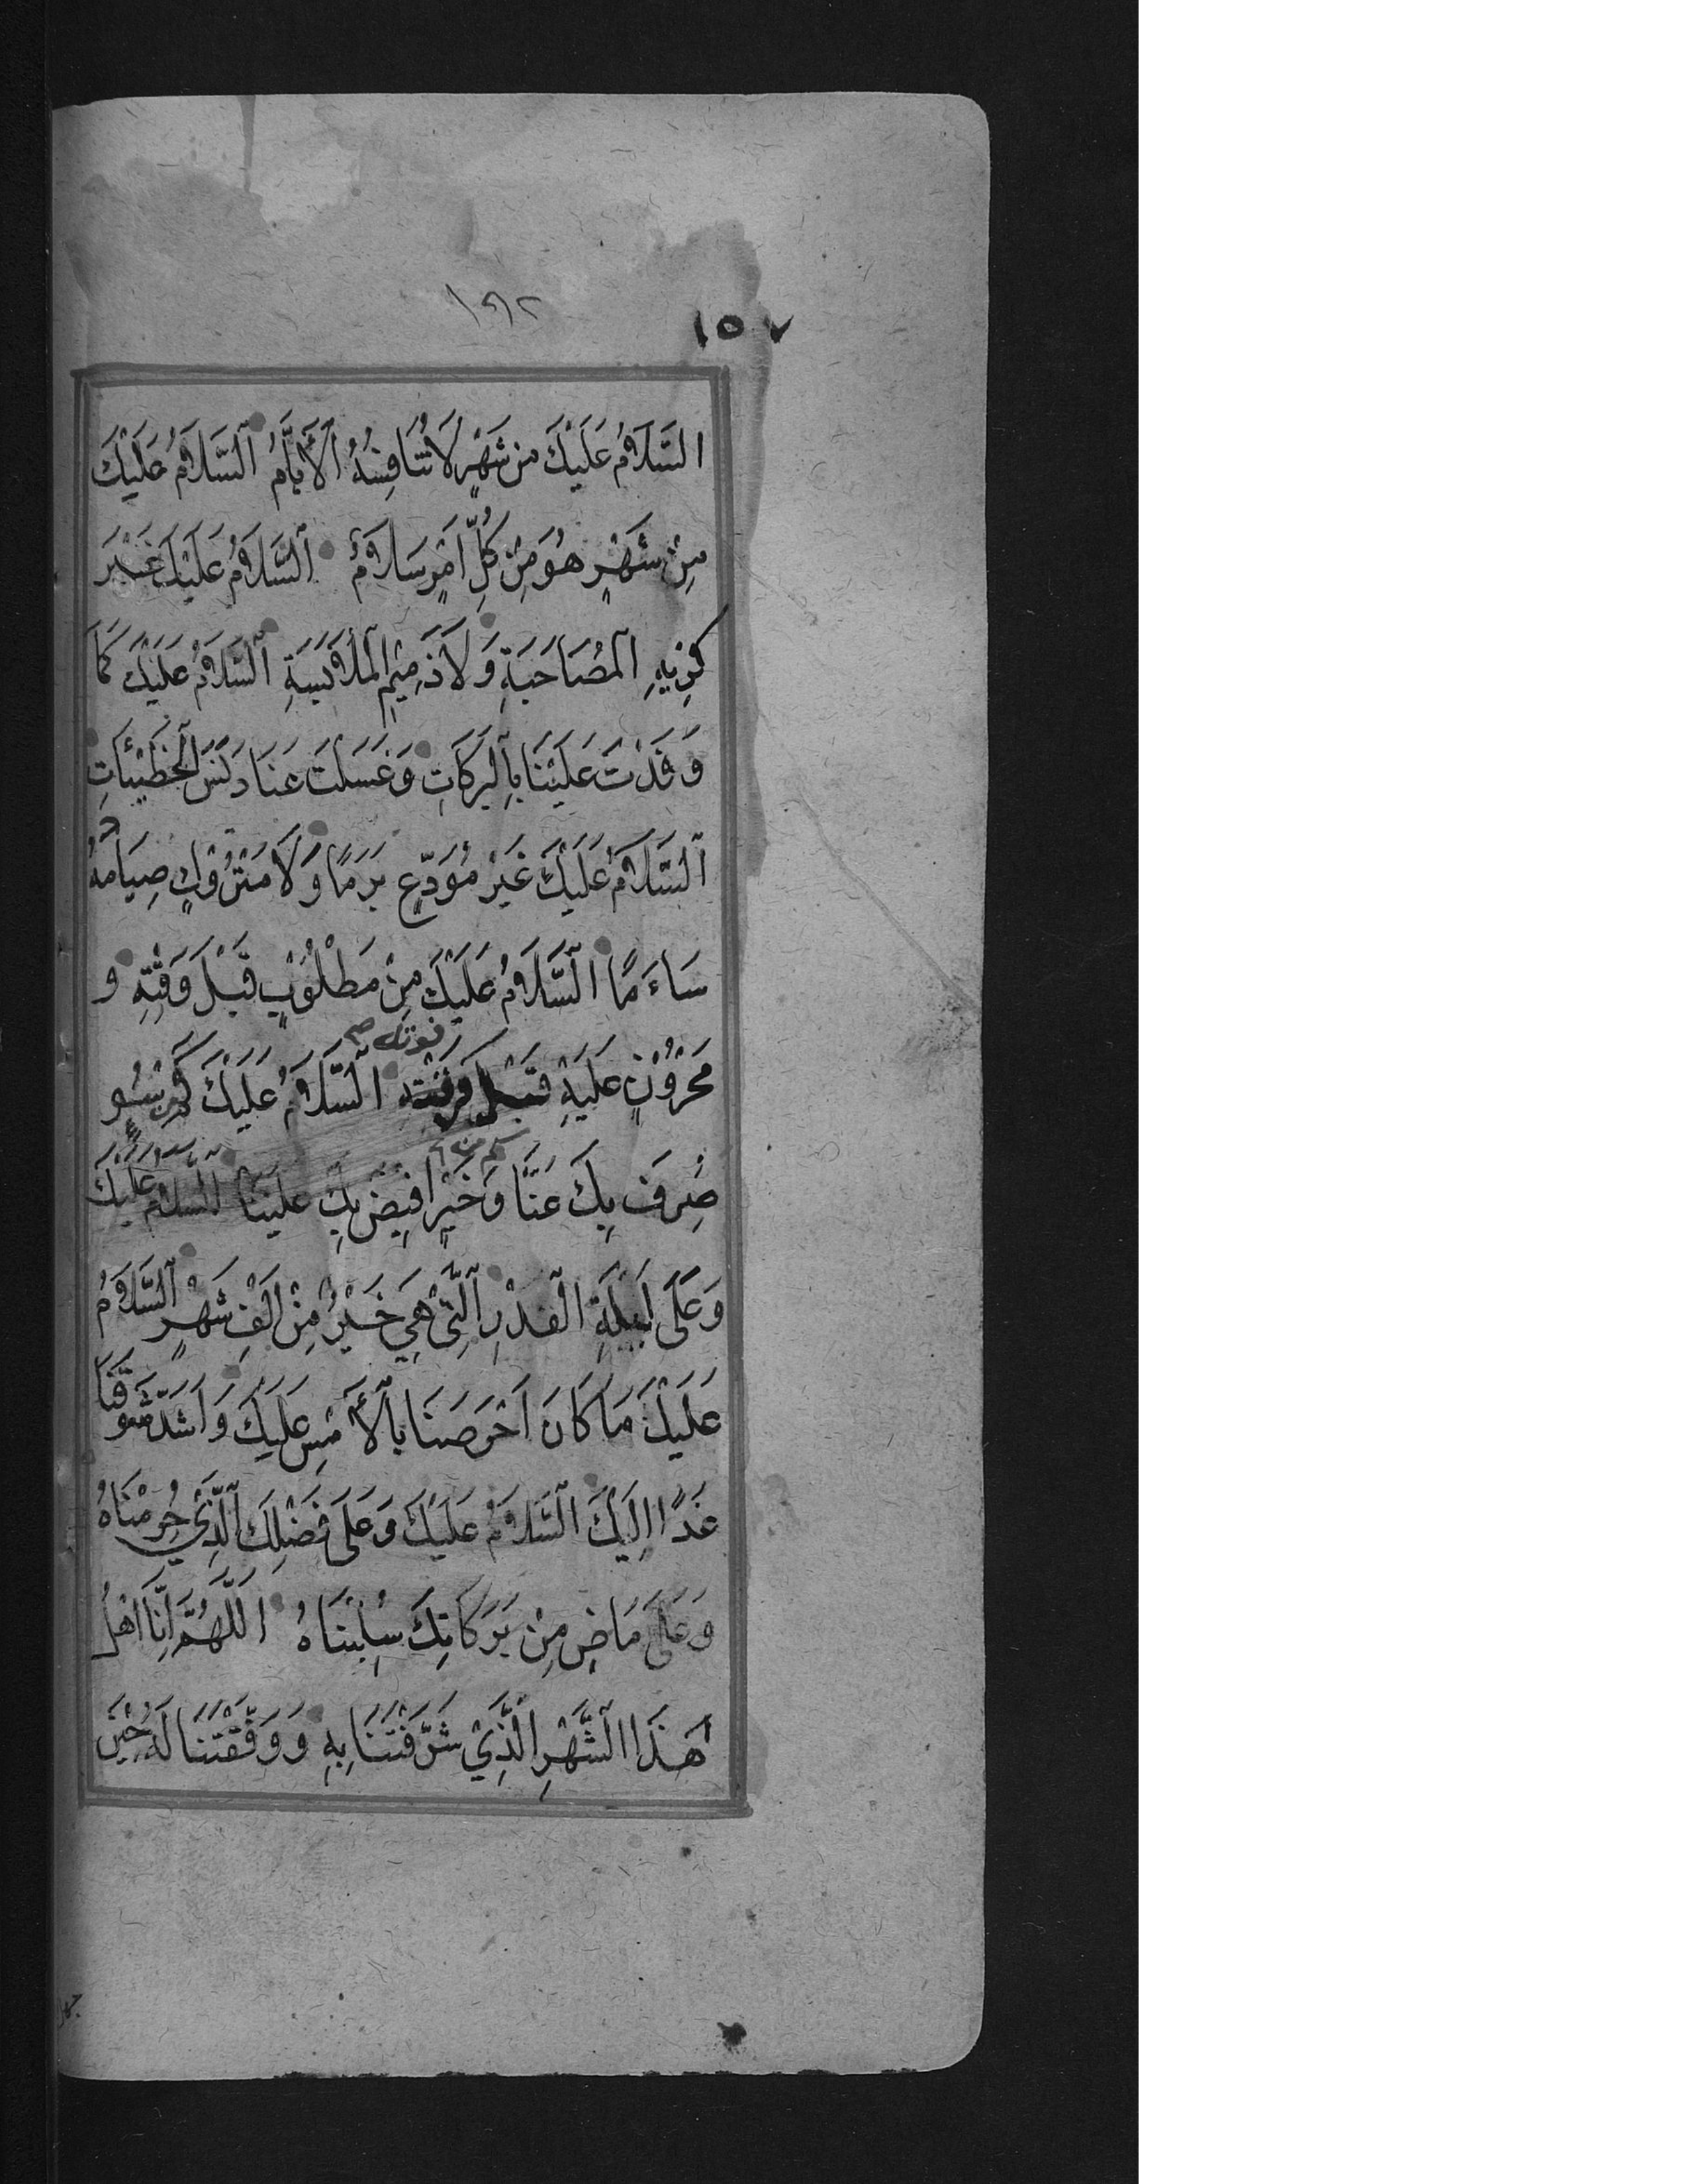 ١٥٧
السَّلَامُ عَلَيْكَ من شَهْرٍ لَا تُنَافِسُهُ الْأَيَّامُ اَلسَّلَامُ عَلَيْكَ
مِنْ شَهْرٍ هُوَ مِنْ كُلِّ اَمْرٍ سَلَامٌ اَلسَّلَامُ عَلَيْكَ غَيْرَ
كَرِيهِ الْمُصَاحَبَةِ وَلَا ذَمِيْمِ الْمُلَابَسَةِ اَلسَّلَامُ عَلَيْكَ كَمَا
وَفَدْتَ عَلَيْنَا بِالْبَرَكَاتِ وَغَسَلْتَ عَنَّا دَنَسَ الْخَطِيْئَاتِ
اَلسَّلَامُ عَلَيْكَ غَيْرَ مُوَدَّعٍ بَرَمًا وَلَا مَتْرُوْكٍ صِيَامُهُ
سَاءَمًا السَّلَامُ عَلَيْكَ مِنْ مَطْلُوْبٍ قَبْلَ وَقْتِهِ و
مَحْزُوْنٍ عَلَيْهِ قَبْلَ فوته صح السَّلَامُ عَلَيْكَ كَمْ مِنْ سُوءٍ
صُرِفَ بِكَ عَنَّا وَ كم من خَيْرٍ افِيْضَ بِكَ عَلَيْنَا السَّلَامُ عَلَيْكَ
وَعَلَى لَيْلَةِ الْقَدْرِ الَّتِيْ هِيَ خَيْرٌ مِنْ اَلْفِ شَهْرٍ اَلسَّلَامُ
عَلَيْكَ مَا كَانَ اَحْرَصَنَا بِالْأَمْسِ عَلَيْكَ وَاَشَدَّ شَوْقَنَا
غَدًا اِلَيْكَ السَّلَامُ عَلَيْكَ وَعَلَى فَضْلِكَ الَّذِيْ حُرِمْنَاهُ
وَعَلَى مَاضٍ مِنْ بَرَكَاتِكَ سُلِبْنَاهُ اللَّهُمَّ اِنَّا اَهْلُ
هَذَا الشَّهْرِ الَّذِيْ شَرَّفْتَنَا بِهِ وَوَفَّقْتَنَا لَهُ حِيْنَ